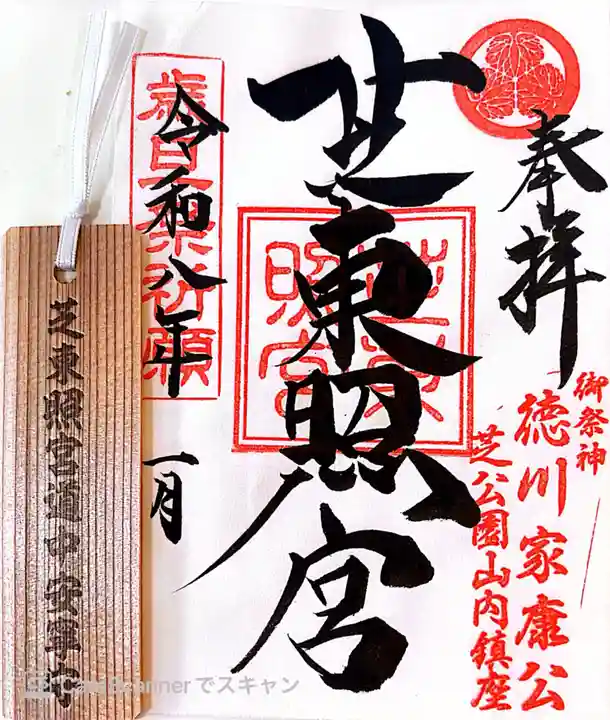 奉拝
御祭神
徳川家康公
芝公園山内鎮座
芝東照宮
令和八年
一月
芝東照宮道中安寧守
CamScannerでスキャン